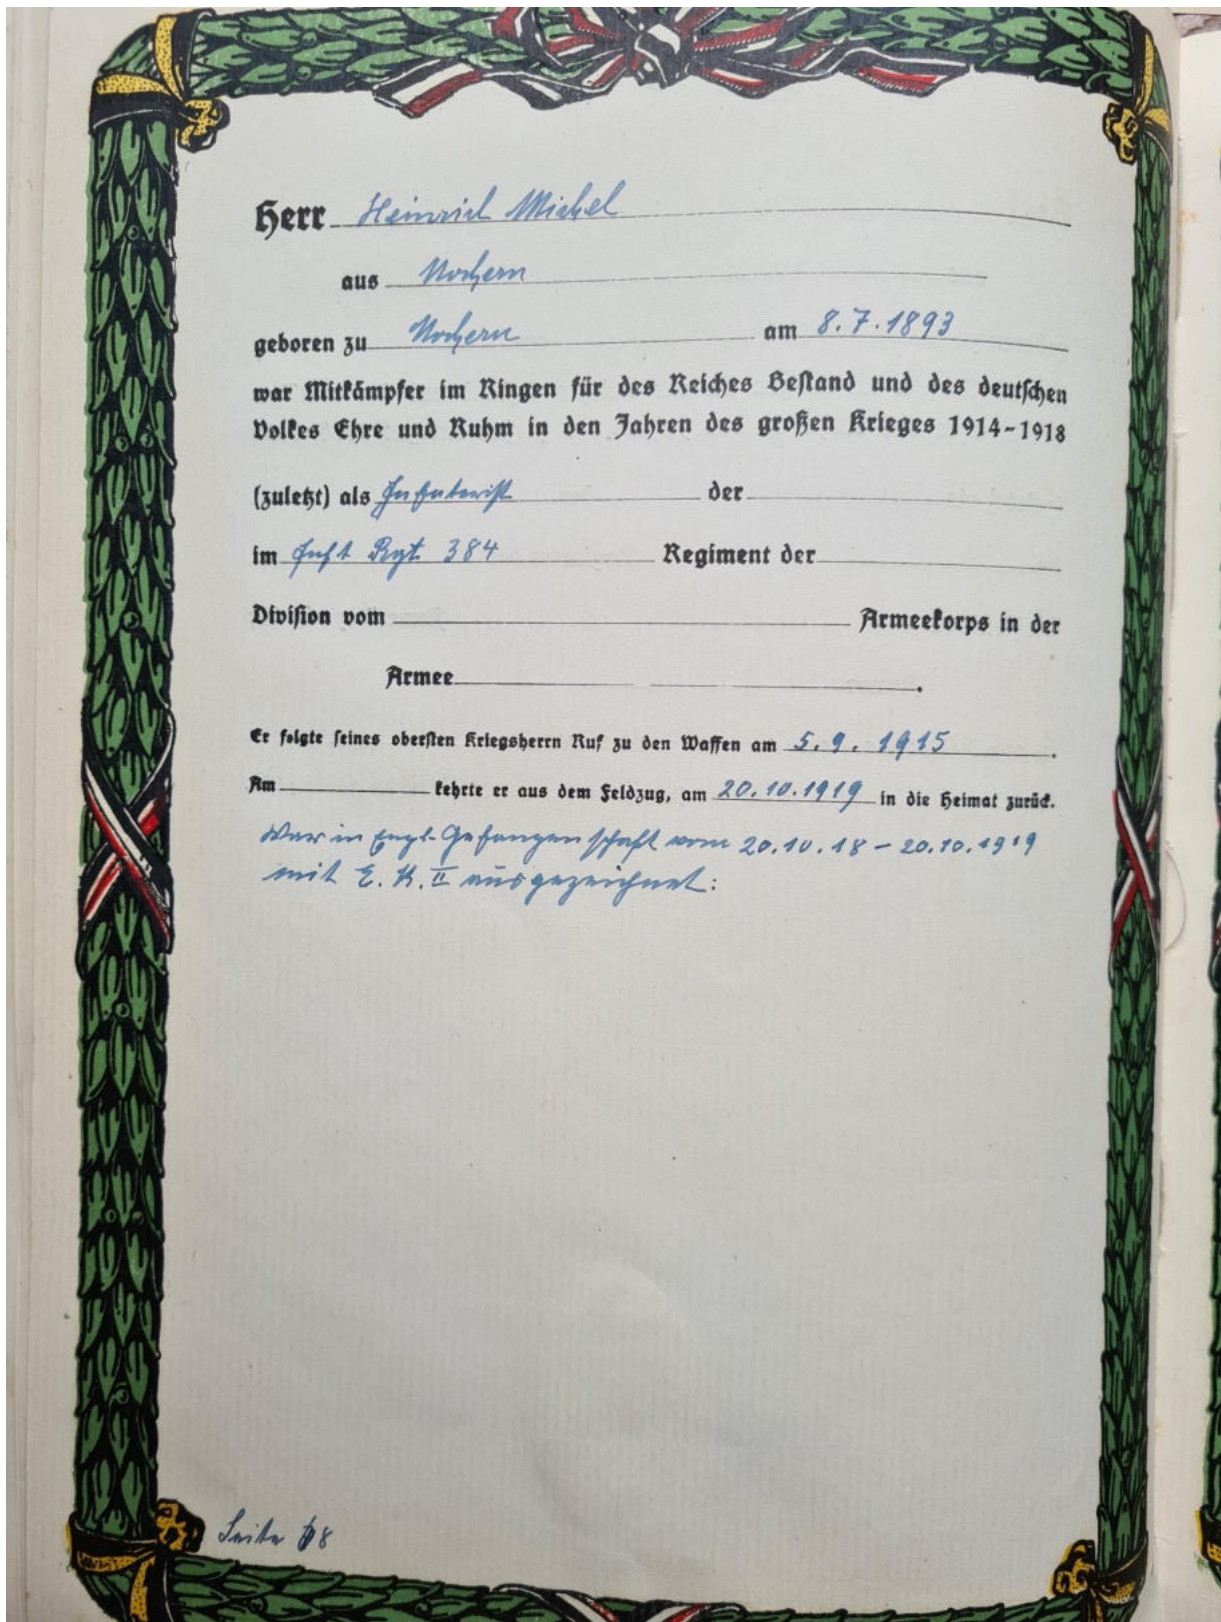 Herr Heinrich Michel
aus Nochern
geboren zu Nochern am 8.7.1893
war Mitkämpfer im Ringen für des Reiches Bestand und des deutschen
Volkes Ehre und Ruhm in den Jahren des großen Krieges 1914-1918
(zuletzt) als Infanterist der
im Inft Rgt. 384 Regiment der
Division vom Armeekorps in der
Armee .
Er folgte seines obersten Kriegsherrn Ruf zu den Waffen am 5.9.1915 .
Am kehrte er aus dem Feldzug, am 20.10.1919 in die Heimat zurück.
War in Engl. Gefangenschaft vom 20.10.18 - 20.10.1919
mit E.K.II ausgezeichnet:
Seite 8